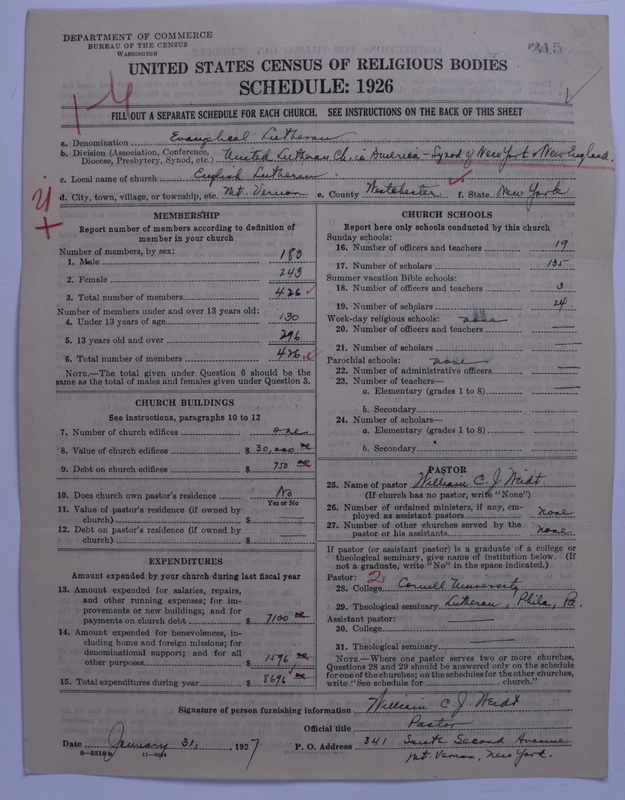 DEPARTMENT OF COMMERCE
BUREAU OF THE CENSUS
WASHINGTON
245
UNITED STATES CENSUS OF RELIGIOUS BODIES
SCHEDULE: 1926
1-4
FILL OUT A SEPARATE SCHEDULE FOR EACH CHURCH. SEE INSTRUCTIONS ON THE BACK OF THIS SHEET
a. Denomination Evangelical Lutheran
b. Division (Association, Conference, Diocese, Presbytery, Synod, etc.) United Lutheran Ch. in America - Synod of New York & New England.
c. Local name of church English Lutheran
d. City, town, village, or township, etc. Mt. Vernon e. County Westchester f. State New York
MEMBERSHIP
Report number of members according to definition of
member in your church
Number of members, by sex:
1. Male 183
2. Female 243
3. Total number of members 426
Number of members under and over 13 years old:
4. Under 13 years of age 130
5. 13 years old and over 296
6. Total number of members 426
NOTE.—The total given under Question 6 should be the
same as the total of males and females given under Question 3.
CHURCH BUILDINGS
See instructions, paragraphs 10 to 12
7. Number of church edifices one
8. Value of church edifices $ 30,000 00
9. Debt on church edifices $ 750 00
10. Does church own pastor's residence No
Yes or No
11. Value of pastor's residence (if owned by
church) $ —
12. Debt on pastor's residence (if owned by
church) $ —
EXPENDITURES
Amount expended by your church during last fiscal year
13. Amount expended for salaries, repairs,
and other running expenses; for im-
provements or new buildings; and for
payments on church debt $ 7100 00
14. Amount expended for benevolences, in-
cluding home and foreign missions; for
denominational support; and for all
other purposes $ 1596 00
15. Total expenditures during year $ 8696 00
CHURCH SCHOOLS
Report here only schools conducted by this church
Sunday schools:
16. Number of officers and teachers 19
17. Number of scholars 135
Summer vacation Bible schools:
18. Number of officers and teachers 3
19. Number of scholars 24
Week-day religious schools: none
20. Number of officers and teachers —
21. Number of scholars —
Parochial schools: none
22. Number of administrative officers —
23. Number of teachers—
a. Elementary (grades 1 to 8) —
b. Secondary
24. Number of scholars—
a. Elementary (grades 1 to 8) —
b. Secondary
PASTOR
25. Name of pastor William C. J. Weidt
(If church has no pastor, write "None")
26. Number of ordained ministers, if any, em-
ployed as assistant pastors none
27. Number of other churches served by the
pastor or his assistants none
If pastor (or assistant pastor) is a graduate of a college or
theological seminary, give name of institution below. (If
not a graduate, write "No" in the space indicated.)
Pastor: 2
28. College Cornell University
29. Theological seminary Lutheran, Phila, Pa.
Assistant pastor:
30. College —
31. Theological seminary —
NOTE.—Where one pastor serves two or more churches,
Questions 28 and 29 should be answered only on the schedule
for one of the churches; on the schedules for the other churches,
write "See schedule for church."
Signature of person furnishing information William C. J. Weidt
Official title Pastor
Date January 31, 1927 P. O. Address 341 South Second Avenue
Mt. Vernon, New York.